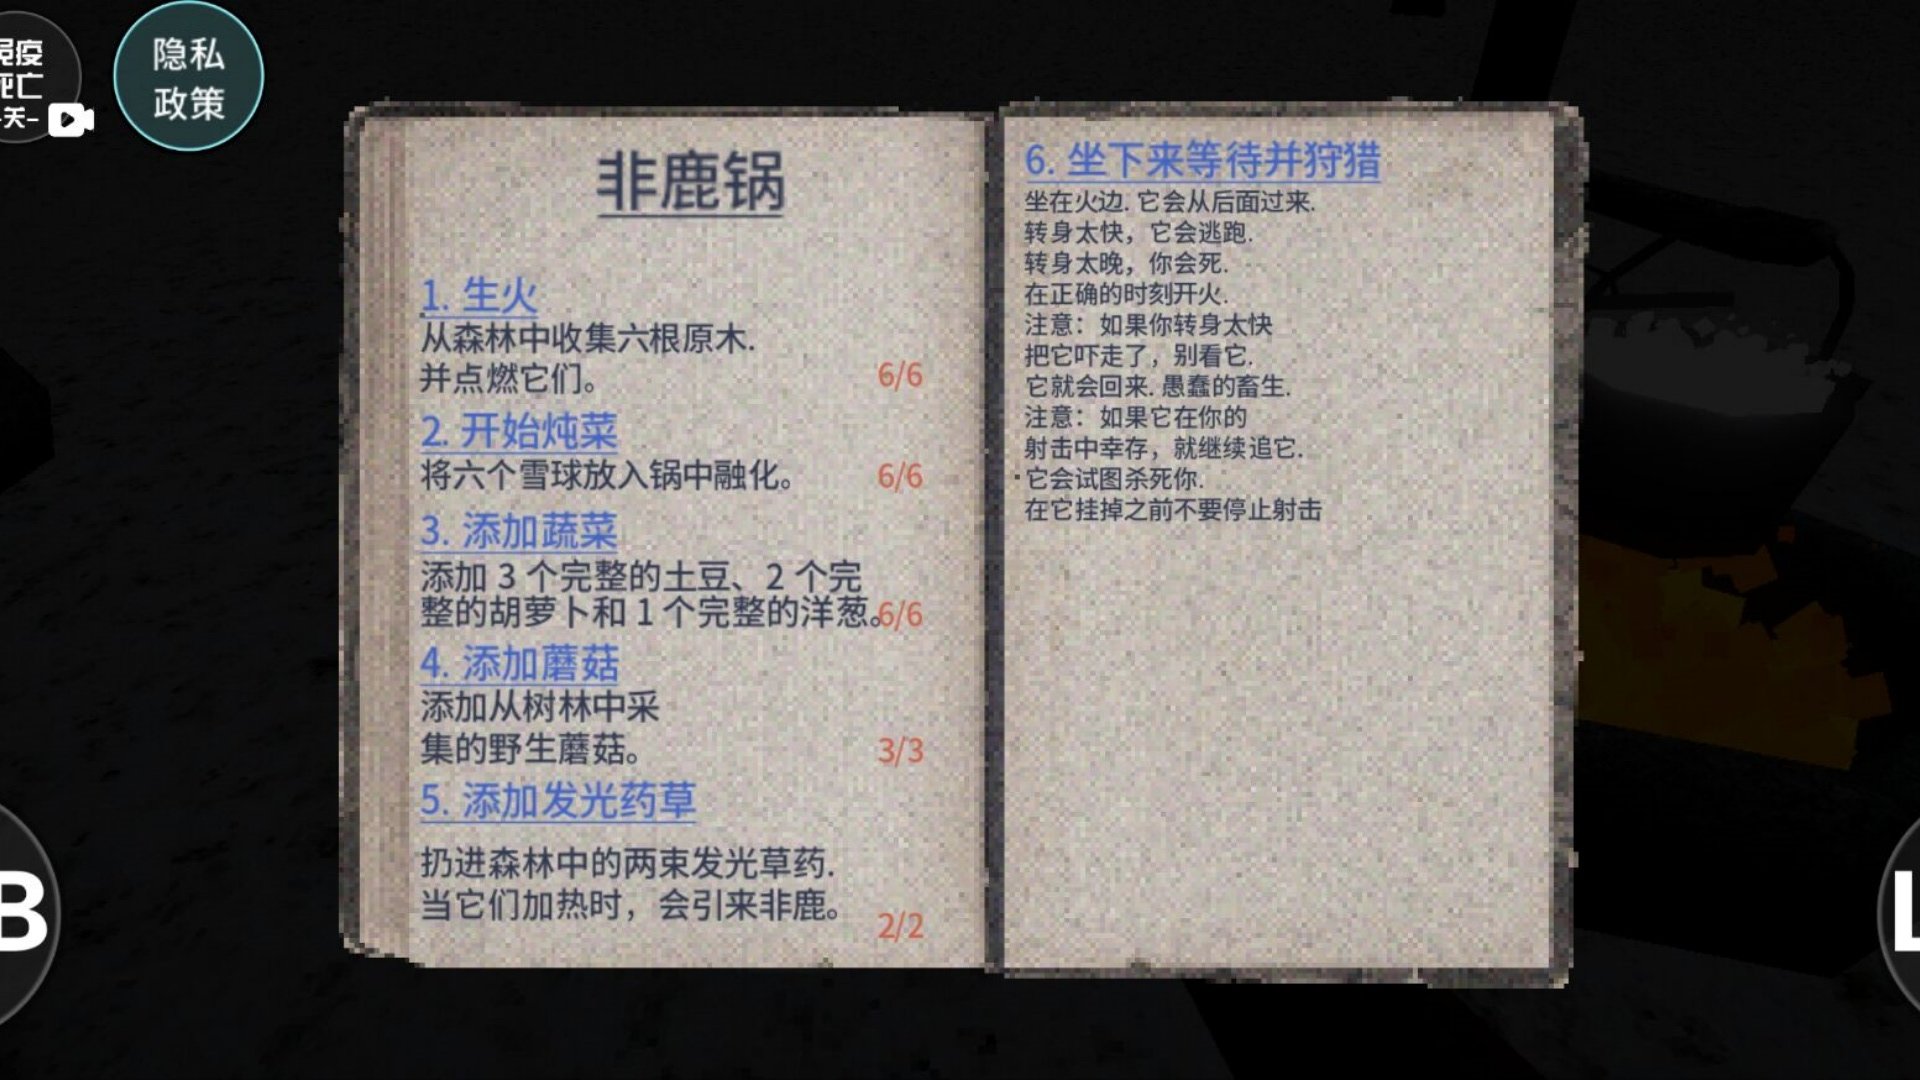 免疫
死亡
-天-
隐私
政策
非鹿锅
1. 生火
从森林中收集六根原木.
并点燃它们。
6/6
2. 开始炖菜
将六个雪球放入锅中融化。
6/6
3. 添加蔬菜
添加 3 个完整的土豆、2 个完
整的胡萝卜和 1 个完整的洋葱。
6/6
4. 添加蘑菇
添加从树林中采
集的野生蘑菇。
3/3
5. 添加发光药草
扔进森林中的两束发光草药.
当它们加热时，会引来非鹿。
2/2
6. 坐下来等待并狩猎
坐在火边. 它会从后面过来.
转身太快，它会逃跑.
转身太晚，你会死.
在正确的时刻开火.
注意：如果你转身太快
把它吓走了，别看它.
它就会回来. 愚蠢的畜生.
注意：如果它在你的
射击中幸存，就继续追它.
它会试图杀死你.
在它挂掉之前不要停止射击
B